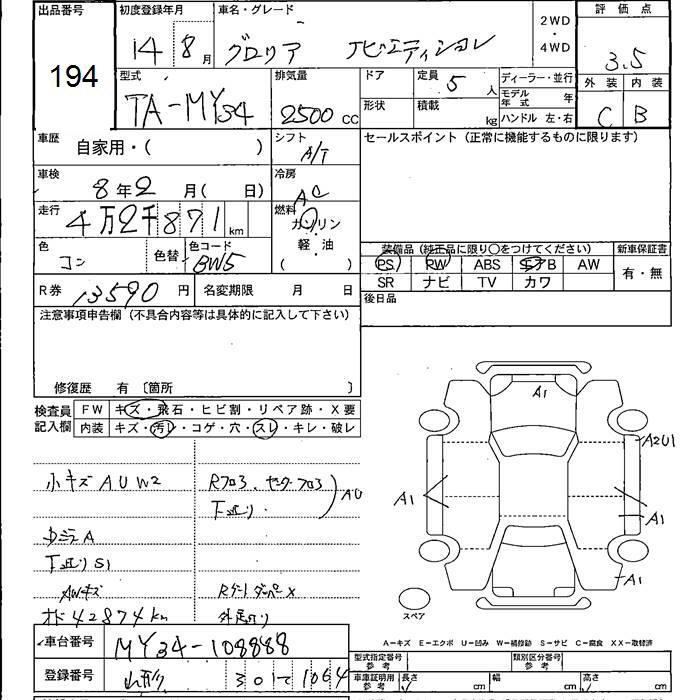 出品番号
194
初度登録年月
14 年 8 月
車名・グレード
グロリア
2WD
・
4WD
評価点
3.5
外装 内装
C B
型式
TA-MY34
排気量
2500 cc
ドア
形状
定員 5 人
積載 kg
ディーラー・並行
モデル年式 年
ハンドル 左・右
車歴
自家用・( )
シフト
A/T
セールスポイント (正常に機能するものに限ります)
車検
8年2月( 日)
冷房
AC
走行
4万2千871km
燃料
ガソリン
軽油
( )
色
コン
色替
色コード
BW5
装備品 (純正品に限り○をつけてください)
新車保証書
PS RW ABS エアB AW
有・無
SR ナビ TV カワ
R券 13590 円
名変期限 月 日
後日品
注意事項申告欄 (不具合内容等は具体的に記入して下さい)
修復歴 有 〔箇所 〕
検査員記入欄
FW キズ・飛石・ヒビ割・リペア跡・X要
内装 キズ・汚レ・コゲ・穴・スレ・キレ・破レ
小キズ A U W2
A
S1
AWキズ
42874km
AU
A1
A2U1
A1
A1
A1
スペア
A-キズ E-エクボ U-凹み W-補修跡 S-サビ C-腐食 XX-取替済
車台番号
MY34-108888
登録番号
山形 301 て 1064
型式指定番号
参考
類別区分番号
参考
車庫証明用
参考
長さ cm
幅 cm
高さ cm